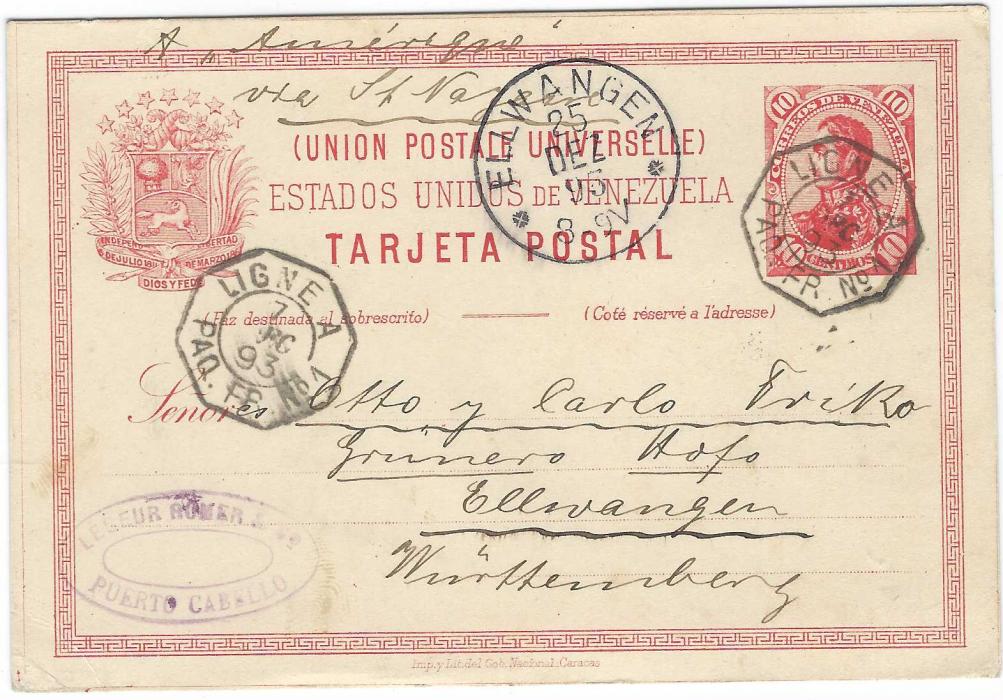 A „Amérique"
via St Nazaire
(UNION POSTALE UNIVERSELLE)
ESTADOS UNIDOS DE VENEZUELA
TARJETA POSTAL
INDEPENDENCIA LIBERTAD
5 DE JULIO 1811 DE MARZO
DIOS Y FEDE
ELLWANGEN
25
DEZ
93
8-9V
10 10
CORREOS DE VENEZUELA
10
CENTIMOS
LIGNE A
PAQ. FR. No 1
LIGNE A
7
DC
93
PAQ. FR. No 1
(Faz destinada al sobrescrito) (Coté réservé a l'adresse)
Señores Otto y Carlo Friko
Grünero Hofo
Ellwangen
Württemberg
LESEUR ROMER & Co
PUERTO CABELLO
Imp. y Lit. del Gob. Nacional. Caracas